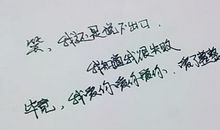 笑，我还是说不出口，
我知道我很失败
毕竟，我爱你爱你爱你，爱了整整